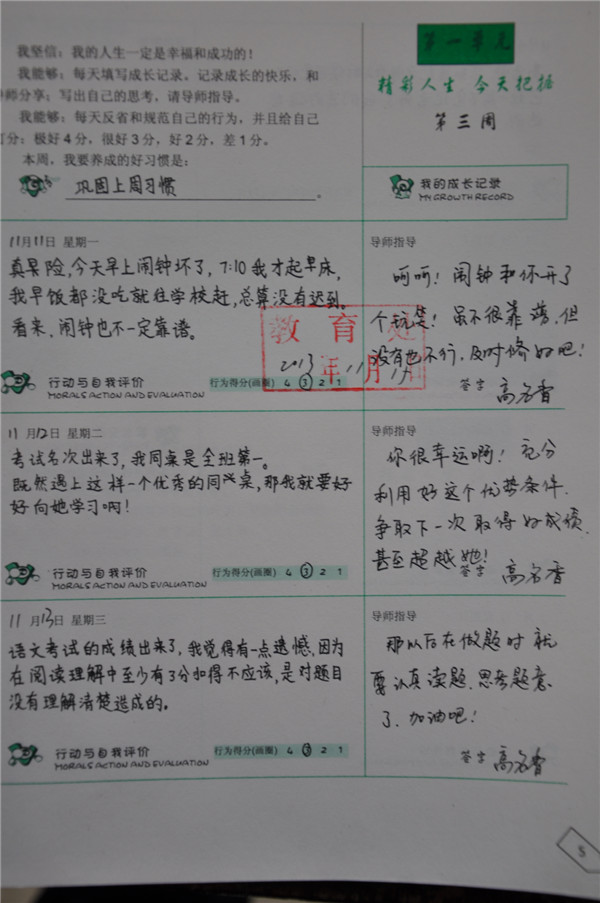 我坚信：我的人生一定是幸福和成功的！
我能够：每天填写成长记录。记录成长的快乐，和
导师分享；写出自己的思考，请导师指导。
我能够：每天反省和规范自己的行为，并且给自己
打分：极好4分，很好3分，好2分，差1分。
本周，我要养成的好习惯是：
巩固上周习惯。
第一单元
精彩人生 今天把握
第三周
我的成长记录
MY GROWTH RECORD
11月11日 星期一
真冒险，今天早上闹钟坏了，7:10我才起早床，
我早饭都没吃就往学校赶，总算没有迟到。
看来，闹钟也不一定靠谱。
行动与自我评价
MORALS ACTION AND EVALUATION
行为得分(画圈) 4 3 2 1
导师指导
呵呵！闹钟和你开了
个玩笑！虽不很靠谱，但
没有也不行，及时修好吧！
签字 高名香
教育处
2013年11月
11月12日 星期二
考试名次出来了，我同桌是全班第一。
既然遇上这样一个优秀的同桌，那我就要好
好向她学习啊！
行动与自我评价
MORALS ACTION AND EVALUATION
行为得分(画圈) 4 3 2 1
导师指导
你很幸运啊！充分
利用好这个优势条件，
争取下一次取得好成绩，
甚至超越她！
签字 高名香
11月13日 星期三
语文考试的成绩出来了，我觉得有一点遗憾，因为
在阅读理解中至少有3分扣得不应该，是对题目
没有理解清楚造成的。
行动与自我评价
MORALS ACTION AND EVALUATION
行为得分(画圈) 4 3 2 1
导师指导
那以后在做题时就
要认真读题，思考题意
了，加油吧！
签字 高名香
5